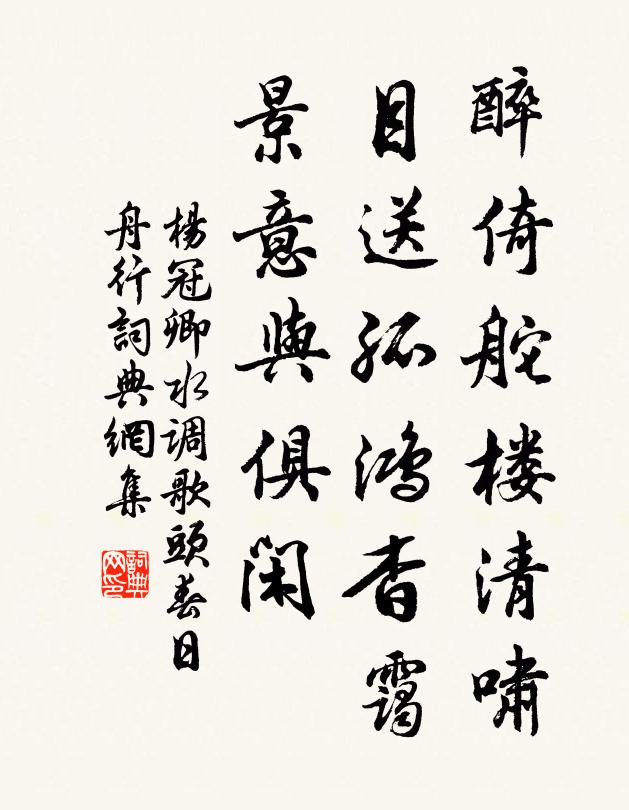 醉倚舵楼清啸
目送孤鸿杳霭
景意與俱閑
楊冠卿水调歌頭春日
舟行詞典網集
詞典网印